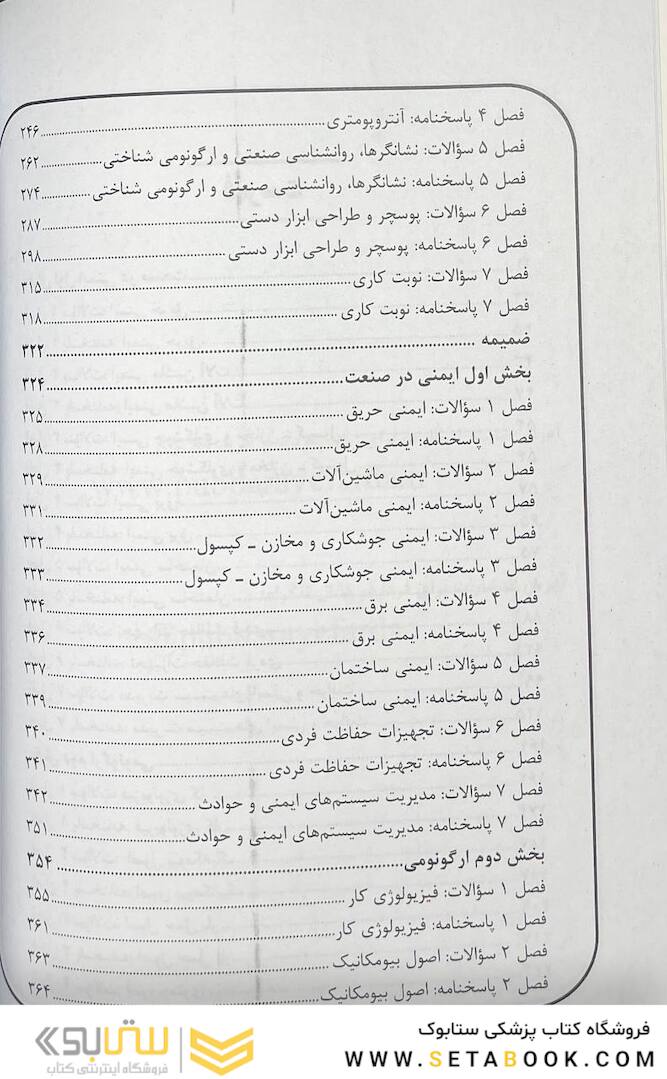 فصل ۴ پاسخنامه: آنتروپومتری ........ ۲۴۶
فصل ۵ سؤالات: نشانگرها، روانشناسی صنعتی و ارگونومی شناختی ........ ۲۶۲
فصل ۵ پاسخنامه: نشانگرها، روانشناسی صنعتی و ارگونومی شناختی ........ ۲۷۴
فصل ۶ سؤالات: پوسچر و طراحی ابزار دستی ........ ۲۸۷
فصل ۶ پاسخنامه: پوسچر و طراحی ابزار دستی ........ ۲۹۸
فصل ۷ سؤالات: نوبت کاری ........ ۳۱۵
فصل ۷ پاسخنامه: نوبت کاری ........ ۳۱۸
ضمیمه ........ ۳۲۲
بخش اول ایمنی در صنعت ........ ۳۲۴
فصل ۱ سؤالات: ایمنی حریق ........ ۳۲۵
فصل ۱ پاسخنامه: ایمنی حریق ........ ۳۲۸
فصل ۲ سؤالات: ایمنی ماشین‌آلات ........ ۳۲۹
فصل ۲ پاسخنامه: ایمنی ماشین‌آلات ........ ۳۳۱
فصل ۳ سؤالات: ایمنی جوشکاری و مخازن ـ کپسول ........ ۳۳۲
فصل ۳ پاسخنامه: ایمنی جوشکاری و مخازن ـ کپسول ........ ۳۳۳
فصل ۴ سؤالات: ایمنی برق ........ ۳۳۴
فصل ۴ پاسخنامه: ایمنی برق ........ ۳۳۶
فصل ۵ سؤالات: ایمنی ساختمان ........ ۳۳۷
فصل ۵ پاسخنامه: ایمنی ساختمان ........ ۳۳۹
فصل ۶ سؤالات: تجهیزات حفاظت فردی ........ ۳۴۰
فصل ۶ پاسخنامه: تجهیزات حفاظت فردی ........ ۳۴۱
فصل ۷ سؤالات: مدیریت سیستم‌های ایمنی و حوادث ........ ۳۴۲
فصل ۷ پاسخنامه: مدیریت سیستم‌های ایمنی و حوادث ........ ۳۵۱
بخش دوم ارگونومی ........ ۳۵۴
فصل ۱ سؤالات: فیزیولوژی کار ........ ۳۵۵
فصل ۱ پاسخنامه: فیزیولوژی کار ........ ۳۶۱
فصل ۲ سؤالات: اصول بیومکانیک ........ ۳۶۳
فصل ۲ پاسخنامه: اصول بیومکانیک ........ ۳۶۴
فروشگاه کتاب پزشکی ستابوک
WWW.SETABOOK.COM
ستابوک
فروشگاه اینترنتی کتاب